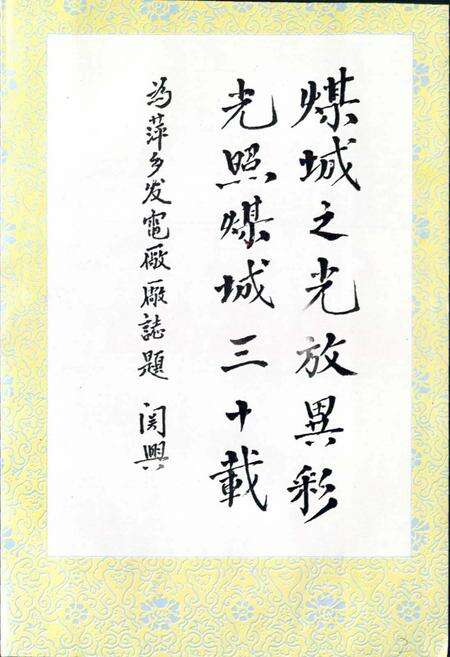 煤城之光放異彩
光照煤城三十載
为萍乡发電廠廠誌題
闵興